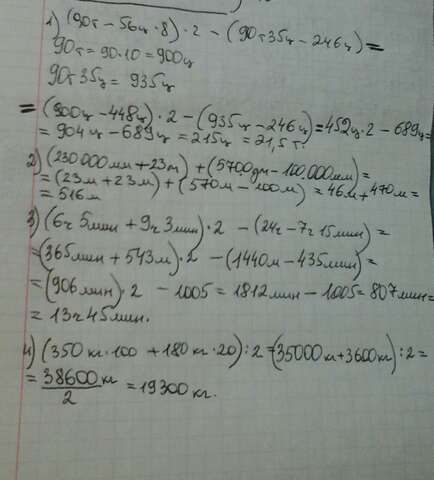 1) (90т - 56ц · 8) · 2 - (90т 35ц - 246ц) =
90т = 90 · 10 = 900ц
90т 35ц = 935ц
= (900ц - 448ц) · 2 - (935ц - 246ц) = 452ц · 2 - 689ц =
= 904ц - 689ц = 215ц = 21,5т.
2) (230000мм + 23м) + (5700дм - 100.000мм) =
= (23м + 23м) + (570м - 100м) = 46м + 470м =
= 516м
3) (6ч 5мин + 9ч 3мин) · 2 - (24ч - 7ч 15мин) =
= (365мин + 543м) · 2 - (1440м - 435мин) =
= (906мин) · 2 - 1005 = 1812мин - 1005 = 807мин =
= 13ч 45мин.
4) (350кг · 100 + 180кг · 20) : 2 = (35000кг + 3600кг) : 2 =
= 38600кг / 2 = 19300кг.